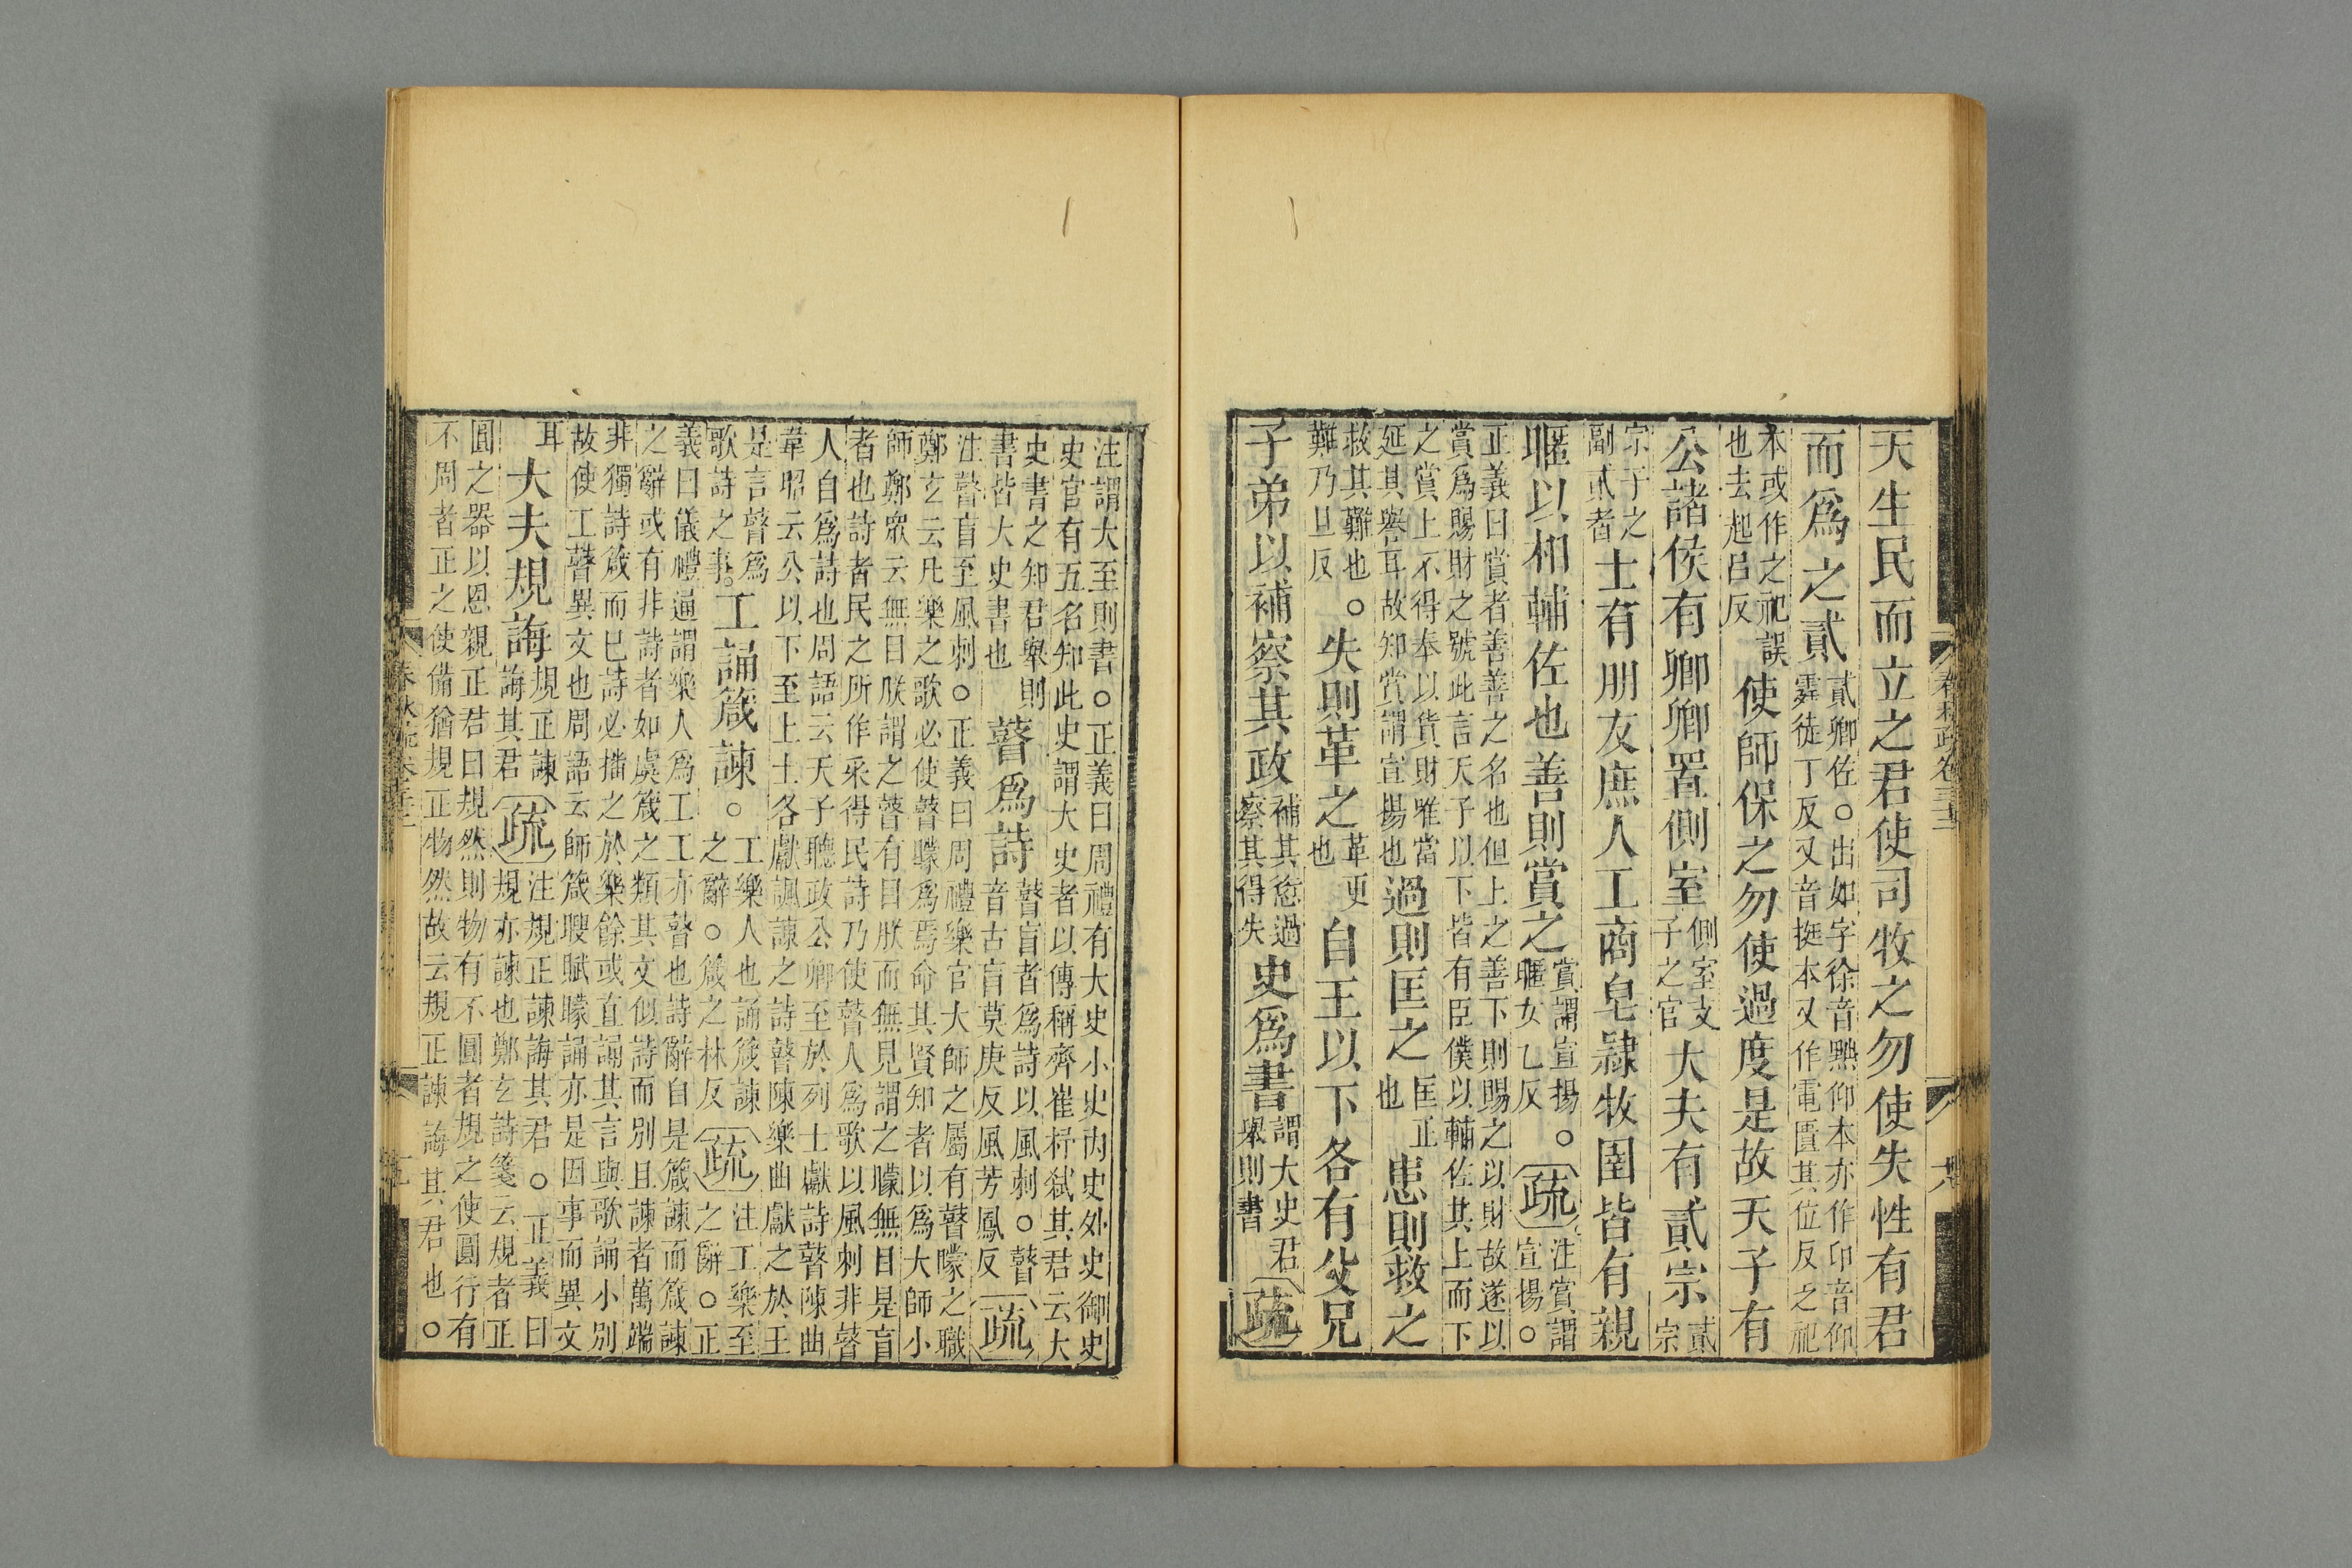 天生民而立之君使司牧之勿使失性有君
而爲之貳貳卿佐○出如字徐音黜仰本亦作卬音仰
霆徒丁反又音挺本又作電匱其位反之祀
本或作之祀誤
也去起呂反使師保之勿使過度是故天子有
公諸侯有卿卿置側室側室支
子之官大夫有貳宗貳
宗
宗子之
副貳者士有朋友庶人工商皂隷牧圉皆有親
暱以相輔佐也善則賞之賞謂宣揚○
暱女乙反疏注賞謂
宣揚○
正義曰賞者善善之名也但上之善下則賜之以財故遂以
賞爲賜財之號此言天子以下皆有臣僕以輔佐其上而下
之賞上不得奉以貨財唯當
延其譽耳故知賞謂宣揚也過則匡之匡正
也患則救之
救其難也○
難乃旦反失則革之革更
也自王以下各有父兄
子弟以補察其政補其愆過
察其得失史爲書謂大史君
舉則書疏
注謂大至則書○正義曰周禮有大史小史內史外史御史
史官有五名知此史謂大史者以傳稱齊崔杼弑其君云大
史書之知君舉則
書皆大史書也瞽爲詩瞽盲者爲詩以風刺○瞽
音古盲莫庚反風芳鳳反疏
注瞽盲至風刺○正義曰周禮樂官大師之屬有瞽矇之職
鄭玄云凡樂之歌必使瞽矇爲焉命其賢知者以爲大師小
師鄭眾云無目眹謂之瞽有目眹而無見謂之矇無目是盲
者也詩者民之所作采得民詩乃使瞽人爲歌以風刺非瞽
人自爲詩也周語云天子聽政公卿至於列士獻詩瞽陳曲
韋昭云公以下至上士各獻諷諫之詩瞽陳樂曲獻之於王
是言瞽爲
歌詩之事工誦箴諫○工樂人也誦箴諫
之辭○箴之林反疏注工樂至
之辭○正
義曰儀禮通謂樂人爲工工亦瞽也詩辭自是箴諫而箴諫
之辭或有非詩者如虞箴之類其文似詩而別且諫者萬端
非獨詩箴而巳詩必播之於樂餘或直誦其言與歌誦小別
故使工瞽異文也周語云師箴瞍賦矇誦亦是因事而異文
耳大夫規誨規正諫
誨其君疏注規正諫誨其君○正義曰
規亦諫也鄭玄詩箋云規者正
圓之器以恩親正君曰規然則物有不圓者規之使圓行有
不周者正之使備猶規正物然故云規正諫誨其君也○